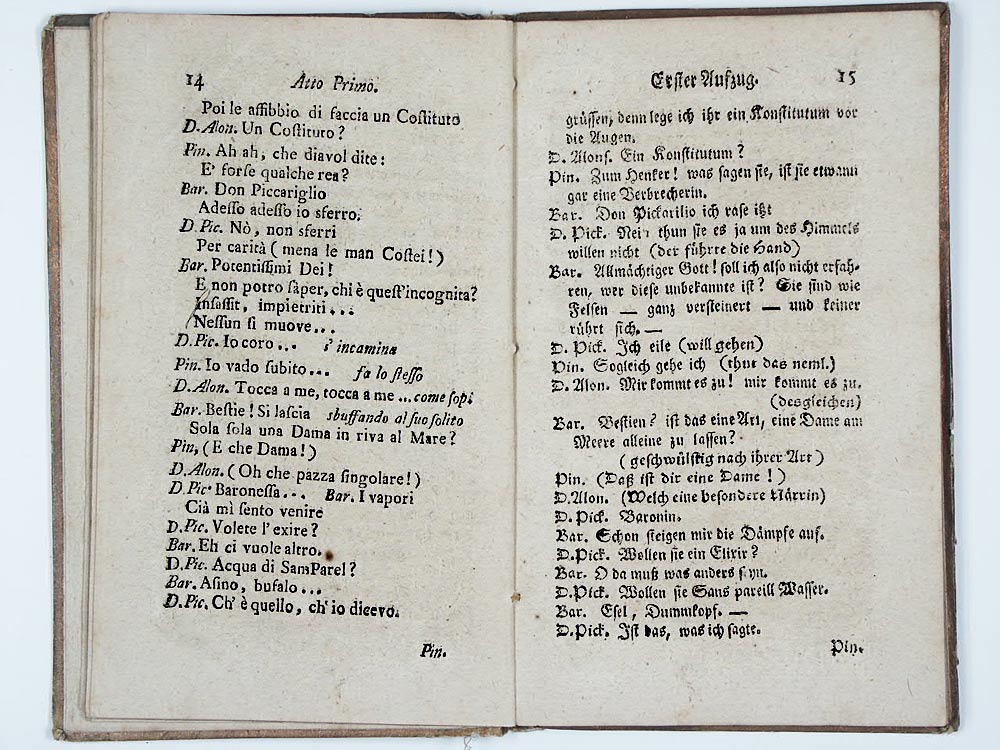 14 Atto Primo.
Poi le affibbio di faccia un Coſtituto
D. Alon. Un Coſtituto?
Pin. Ah ah, che diavol dite:
E' forſe qualche rea?
Bar. Don Piccariglio
Adeſſo adeſſo io sferro.
D. Pic. Nò, non sferri
Per carità (mena le man Coſtei!)
Bar. Potentiſſimi Dei!
E non potro ſaper, chi è queſt'incognita?
Inſaſſit, impietriti...
Neſſun ſi muove...
D. Pic. Io coro... s' incamina
Pin. Io vado ſubito... fa lo ſteſſo
D. Alon. Tocca a me, tocca a me... come ſopr
Bar. Beſtie! Si laſcia sbuffando al ſuo ſolito
Sola ſola una Dama in riva al Mare?
Pin, (E che Dama!)
D. Alon. (Oh che pazza ſingolare!)
D. Pic' Baroneſſa... Bar. I vapori
Cià mì ſento venire
D. Pic. Volete l' exire?
Bar. Eh ci vuole altro.
D. Pic. Acqua di SamParel?
Bar. Aſino, bufalo...
D. Pic. Ch' è quello, ch' io dicevo.
Pin.
Erſter Aufzug. 15
grüſſen, denn lege ich ihr ein Konſtitutum vor
die Augen.
D. Alonſ. Ein Konſtitutum?
Pin. Zum Henker! was ſagen ſie, iſt ſie etwann
gar eine Verbrecherin.
Bar. Don Pickarilio ich raſe itzt
D. Pick. Nein thun ſie es ja um des Himmels
willen nicht (der führte die Hand)
Bar. Allmächtiger Gott! ſoll ich alſo nicht erfah-
ren, wer dieſe unbekannte iſt? Sie ſind wie
Felſen — ganz verſteinert — und keiner
rührt ſich. —
D. Pick. Ich eile (will gehen)
Pin. Sogleich gehe ich (thut das neml.)
D. Alon. Mir kommt es zu! mir kommt es zu.
(desgleichen)
Bar. Beſtien? iſt das eine Art, eine Dame am
Meere alleine zu laſſen?
(geſchwülſtig nach ihrer Art)
Pin. (Daß iſt dir eine Dame!)
D. Alon. (Welch eine beſondere Närrin)
D. Pick. Baronin.
Bar. Schon ſteigen mir die Dämpfe auf.
D. Pick. Wollen ſie ein Elixir?
Bar. O da muß was anders ſeyn.
D. Pick. Wollen ſie Sans pareill Waſſer.
Bar. Eſel, Dummkopf. —
D. Pick. Iſt das, was ich ſagte.
Pin.